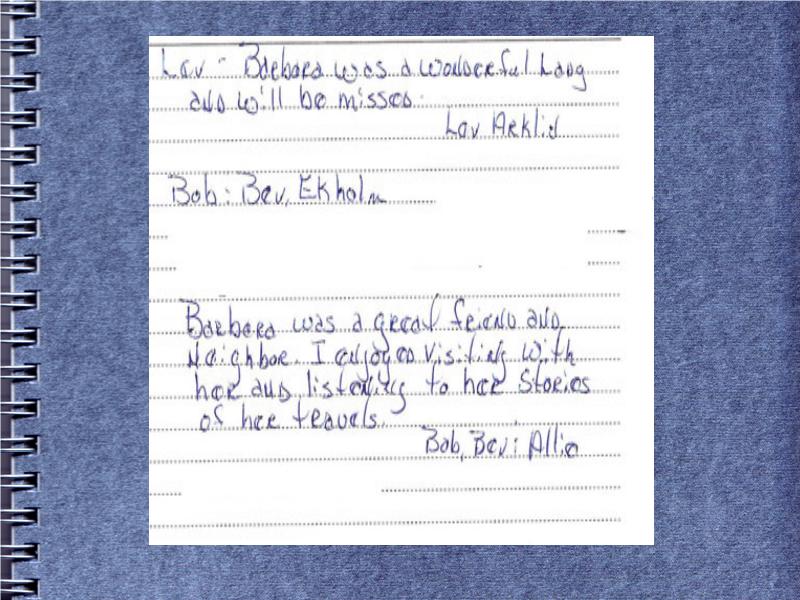 Lav - Barbara was a wonderful Lady
and will be missed.
Lav Arklid
Bob: Bev, Ekholm
Barbara was a great friend and
Neighbor. I enjoyed visiting with
her and listening to her stories
of her travels.
Bob, Bev: Allie